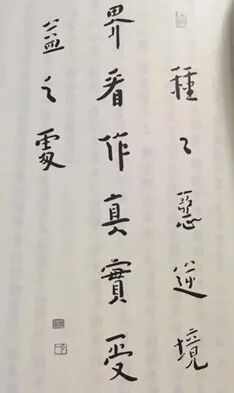 種々惡逆境
界看作真實受
益之處